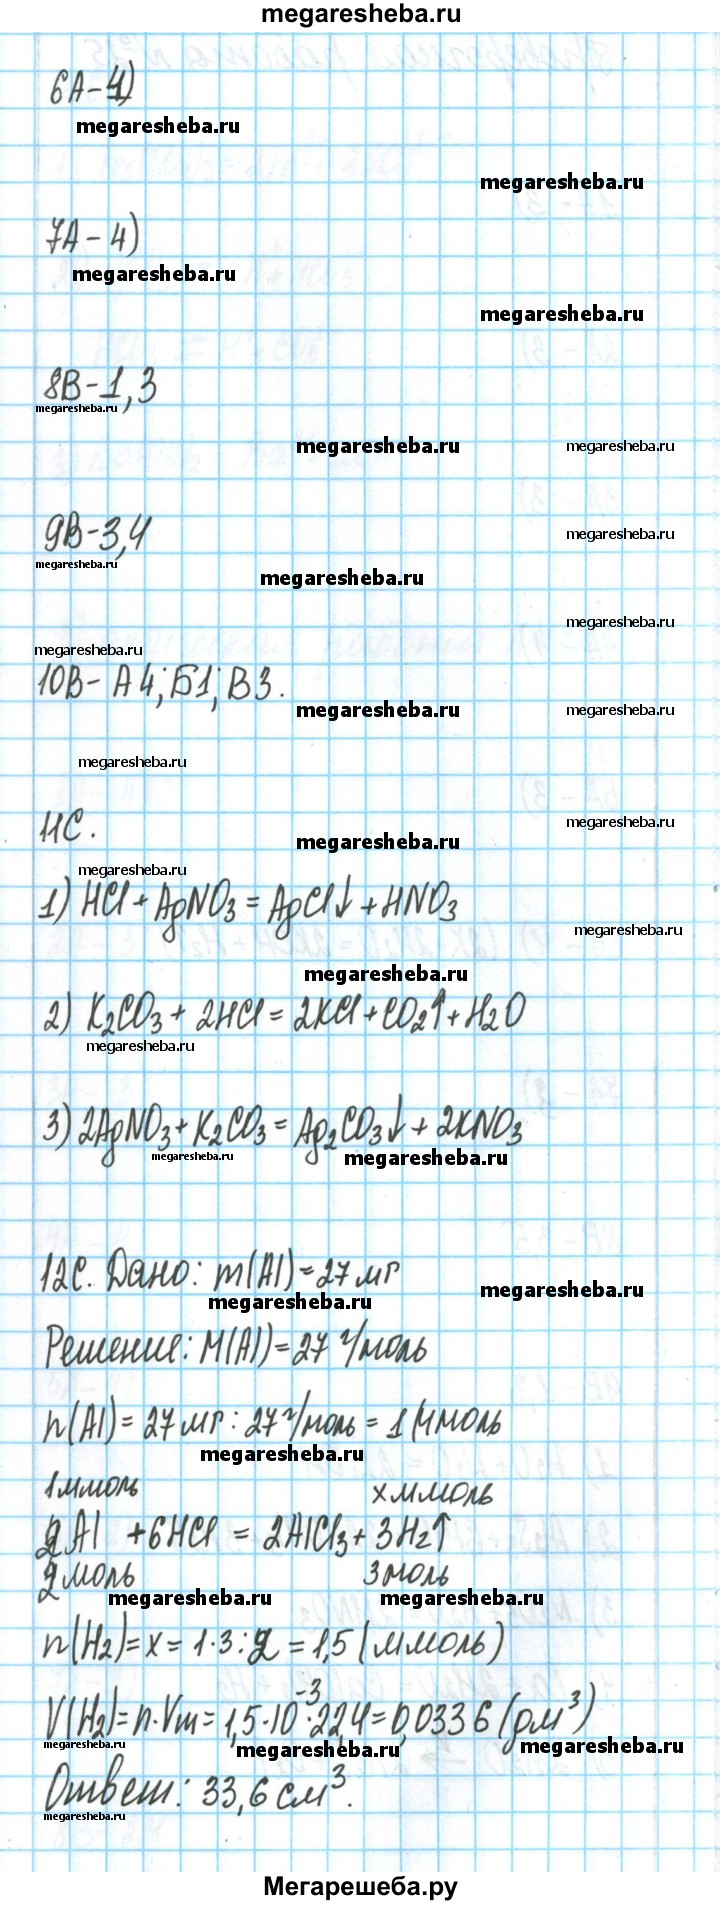 megaresheba.ru
6А-4)
megaresheba.ru
megaresheba.ru
7А-4)
megaresheba.ru
megaresheba.ru
8В-1,3
megaresheba.ru
megaresheba.ru
megaresheba.ru
9В-3,4
megaresheba.ru
megaresheba.ru
megaresheba.ru
megaresheba.ru
megaresheba.ru
10В- А4; Б1; В3.
megaresheba.ru
megaresheba.ru
megaresheba.ru
11С.
megaresheba.ru
megaresheba.ru
megaresheba.ru
1) HCl + AgNO3 = AgCl↓ + HNO3
megaresheba.ru
megaresheba.ru
2) K2CO3 + 2HCl = 2KCl + CO2↑ + H2O
megaresheba.ru
3) 2AgNO3 + K2CO3 = Ag2CO3↓ + 2KNO3
megaresheba.ru
megaresheba.ru
12С. Дано: m(Al) = 27 мг
megaresheba.ru
megaresheba.ru
Решение: M(Al) = 27 г/моль
n(Al) = 27 мг : 27 г/моль = 1 (ммоль
megaresheba.ru
1 ммоль х ммоль
2Al + 6HCl = 2AlCl3 + 3H2↑
2 моль 3 моль
megaresheba.ru
megaresheba.ru
n(H2) = x = 1·3:2 = 1,5 (ммоль)
V(H2) = n·Vm = 1,5·10⁻³·22,4 = 0,0336 (дм³)
megaresheba.ru
megaresheba.ru
megaresheba.ru
Ответ: 33,6 см³.
megaresheba.ru
Мегарешеба.ру